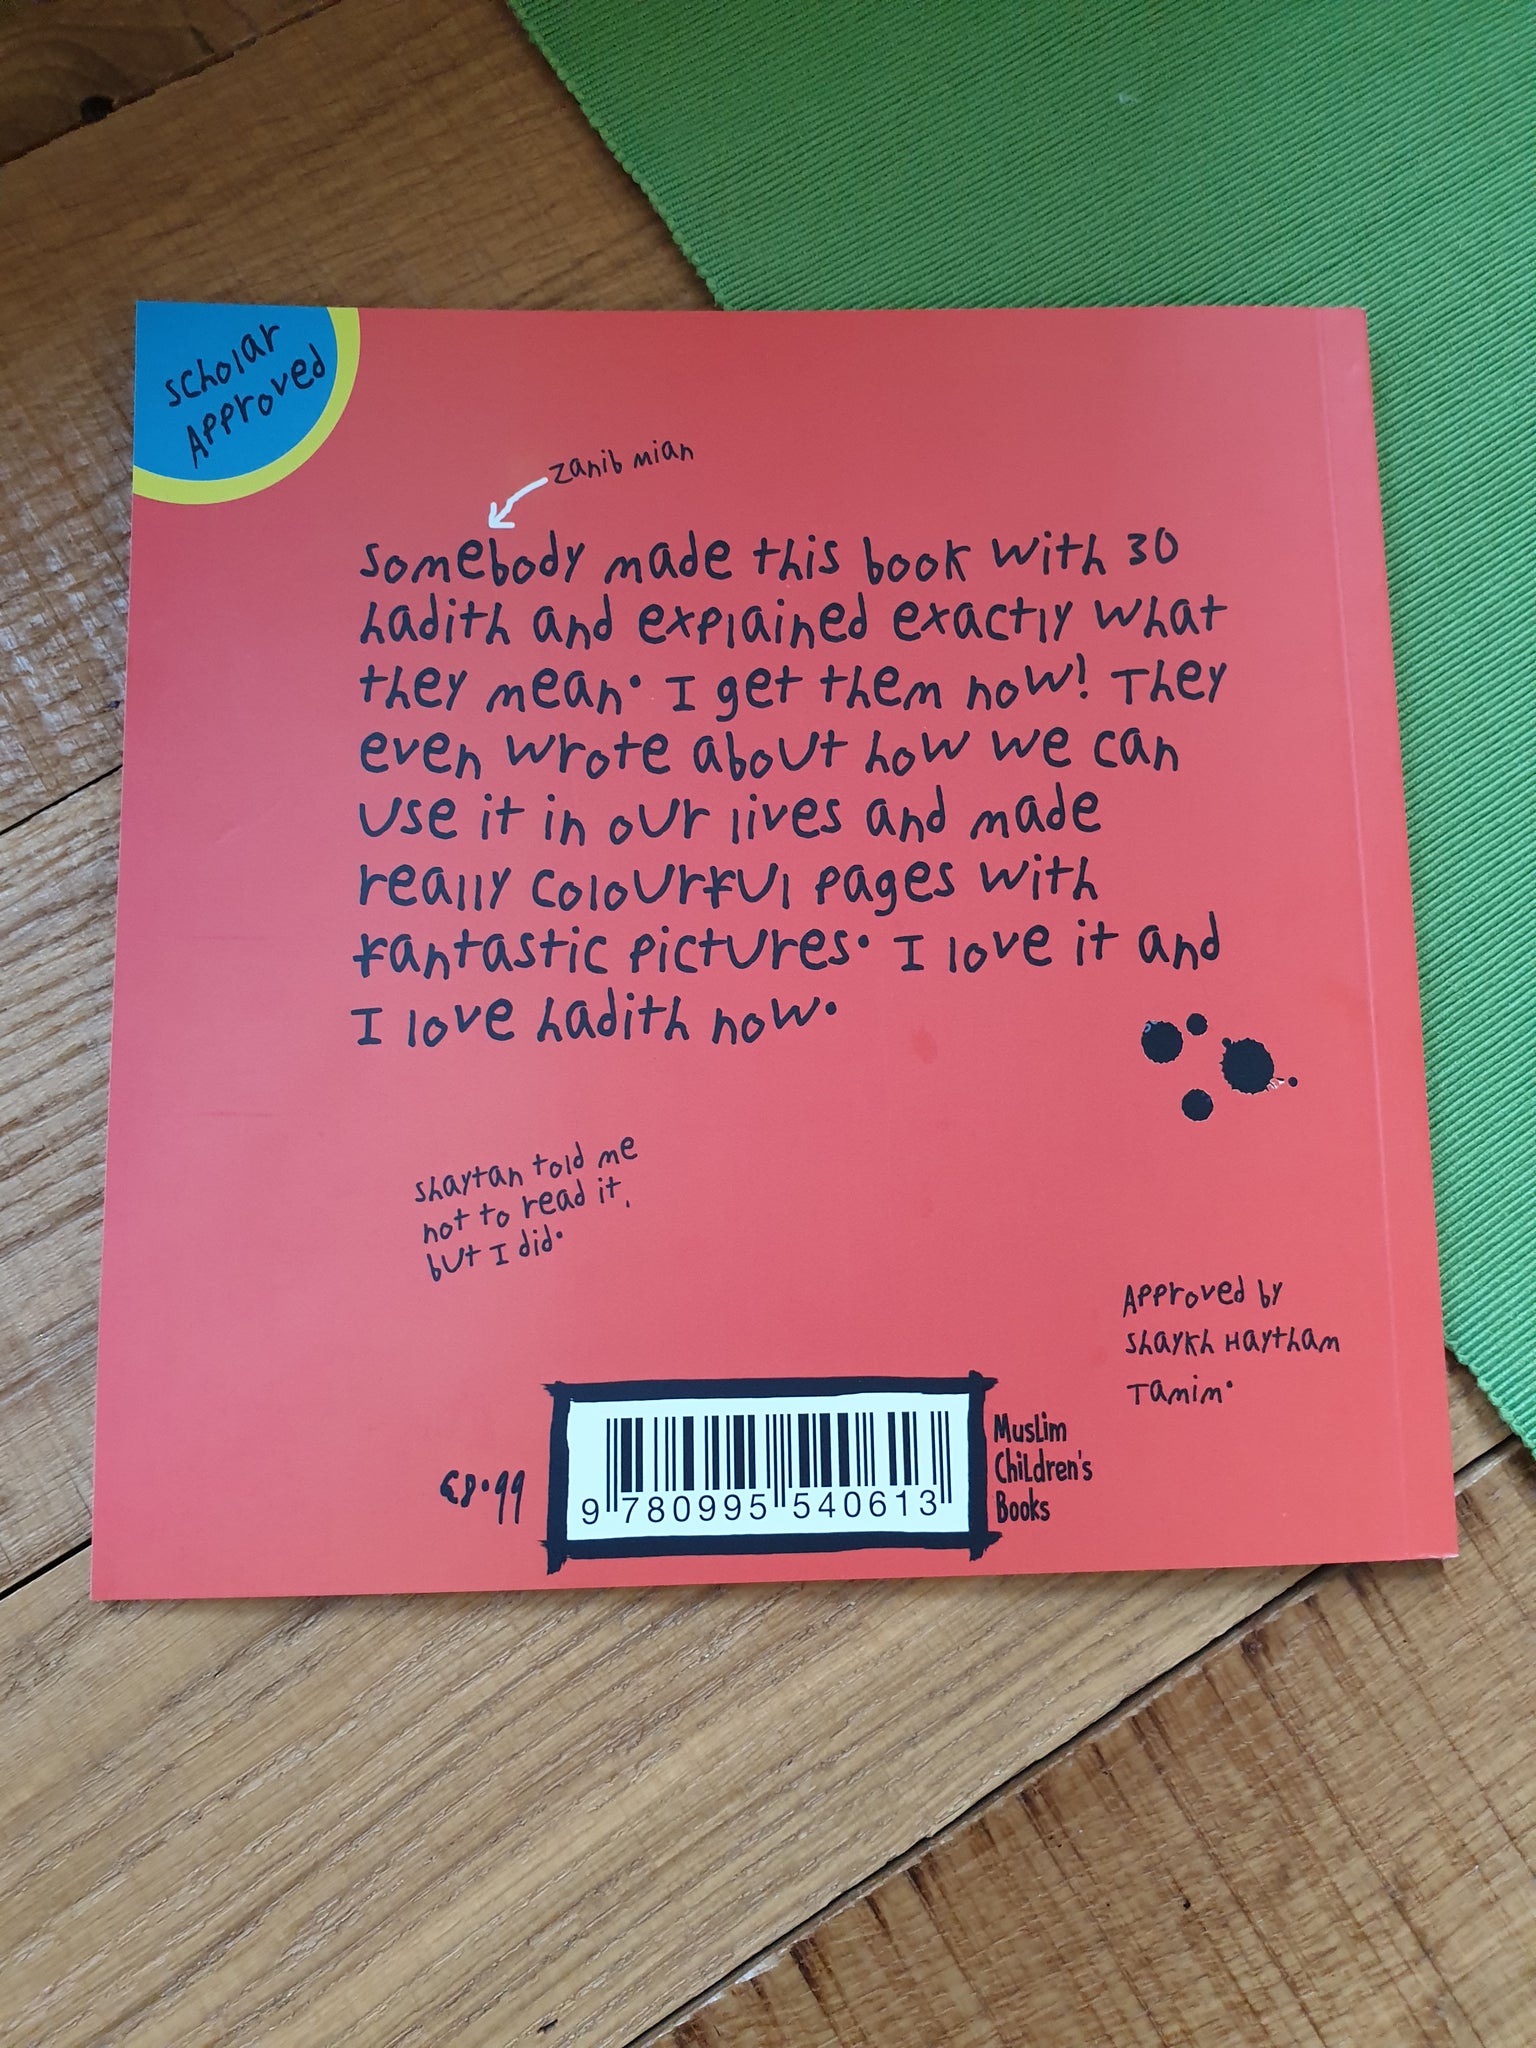 scholar
Approved
zanib mian
somebody made this book with 30
hadith and explained exactly what
they mean. I get them now! They
even wrote about how we can
use it in our lives and made
really colourful pages with
fantastic pictures. I love it and
I love hadith now.
shaytan told me
not to read it,
but I did.
Approved by
shaykh Haytham
Tamim.
£8.99
9 780995 540613
Muslim
Children's
Books